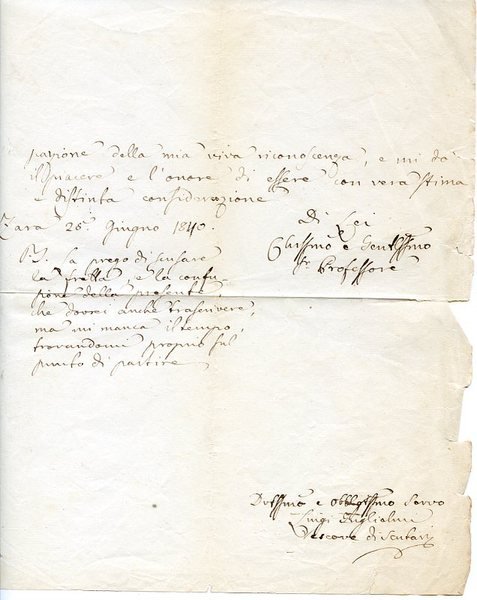 pazione della mia viva riconoscenza, e mi dà
il piacere e l'onore di essere con vera stima
e distinta considerazione
Zara 26. Giugno 1840.
Di Lei
Chissimo e Gentilssmo
Sr. Professore
P.S. La prego di scusare
la fretta, e la confu-
sione della presente,
che dovrei anche trascrivere,
ma mi manca il tempo,
trovandomi proprio sul
punto di partire
e Obblgssmo Servo
Luigi
Vescovo di Scutari